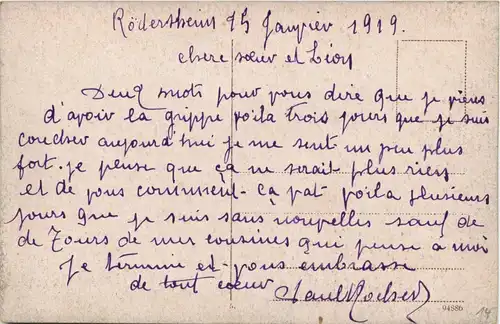 Rödersheim 15 Janvier 1919.
chere sœur et Lion
Deux mots pour vous dire que je viens
d'avoir la grippe voila trois jours que je suis
coucher aujourd'hui je me sent un peu plus
fort. je pense que ça ne serait plus rien
et de vous comment ça vat voila plusieurs
jours que je suis sans nouvelles sauf de
de Tours de mes cousines qui pense à moi
Je termine et vous embrasse
de tout cœur Paul
94886
14